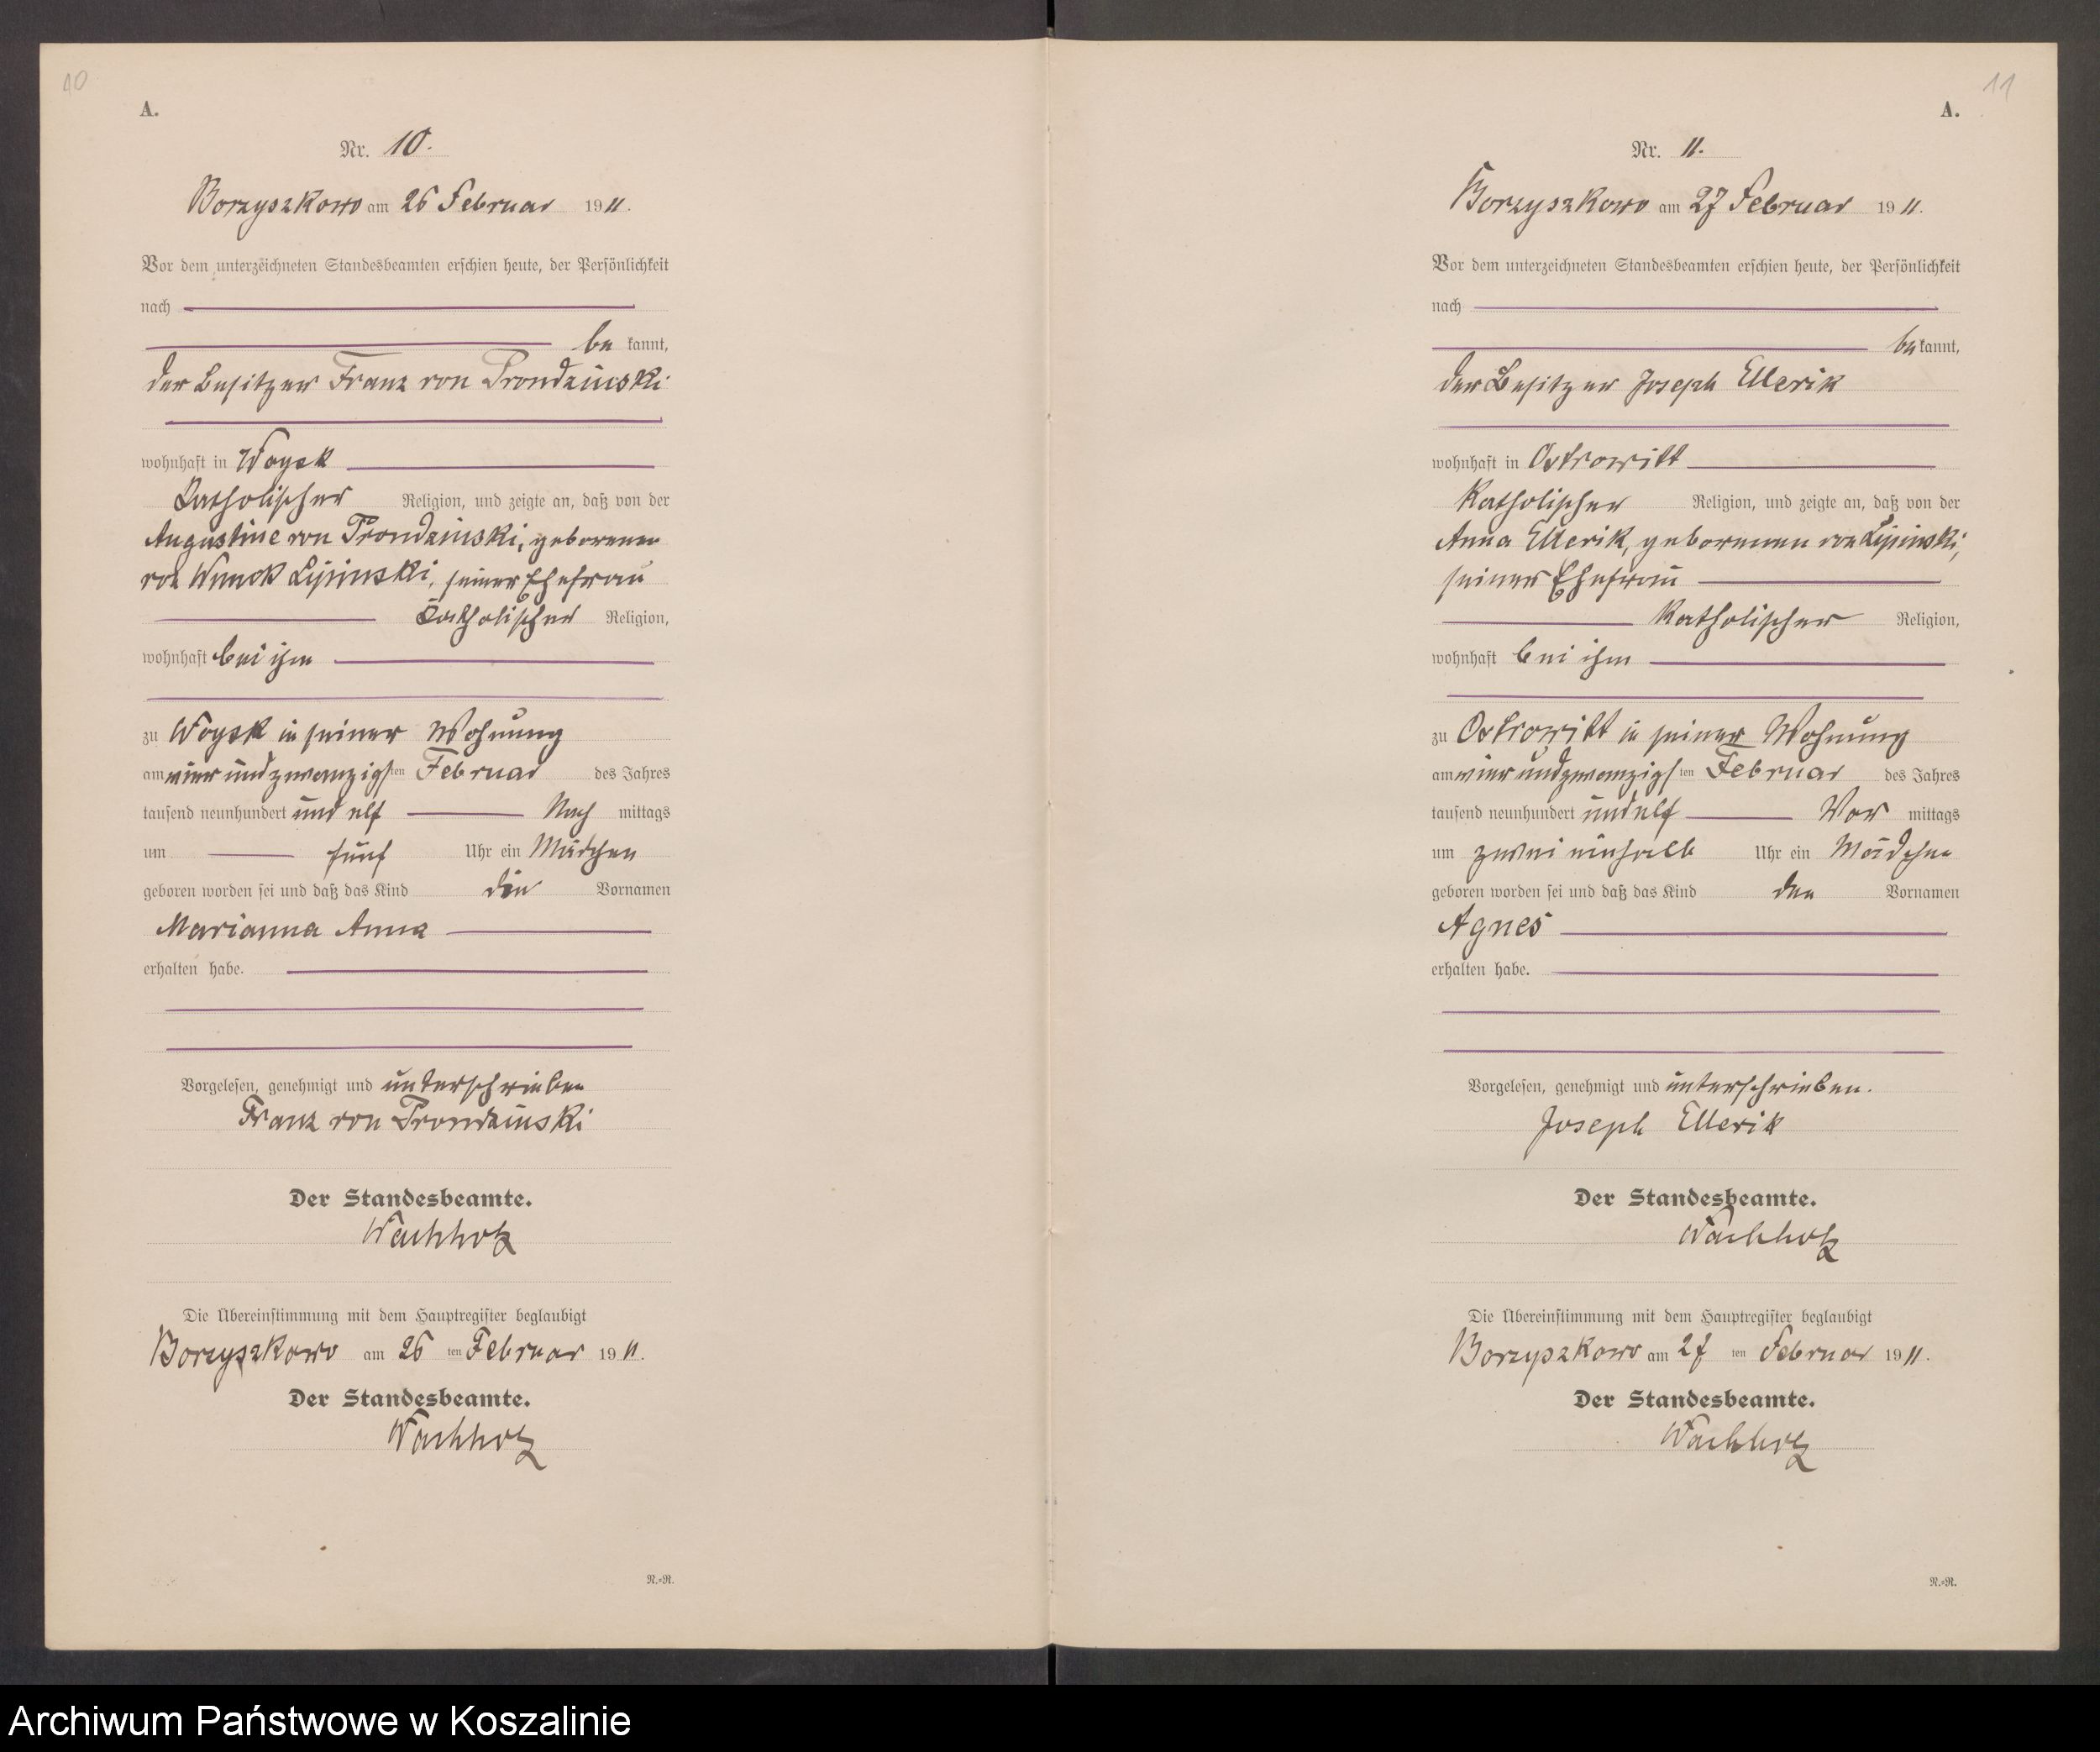 10
A.
Nr. 10.
Borzyszkowo am 26 Februar 1911.
Vor dem unterzeichneten Standesbeamten erschien heute, der Persönlichkeit
nach
be kannt,
der Besitzer Franz von Prondzinski
wohnhaft in Woysk
Katholischer Religion, und zeigte an, daß von der
Augustine von Prondzinski, geborenen
von Wnuck Lipinski, seiner Ehefrau
Katholischer Religion,
wohnhaft bei ihm
zu Woysk in seiner Wohnung
am vierundzwanzigsten Februar des Jahres
tausend neunhundert und elf Nach mittags
um fünf Uhr ein Mädchen
geboren worden sei und daß das Kind die Vornamen
Marianna Anna
erhalten habe.
Vorgelesen, genehmigt und unterschrieben
Franz von Prondzinski
Der Standesbeamte.
Wachholz
Die Übereinstimmung mit dem Hauptregister beglaubigt
Borzyszkowo am 26 ten Februar 1911.
Der Standesbeamte.
Wachholz
N.=R.
11
A.
Nr. 11.
Borzyszkowo am 27 Februar 1911.
Vor dem unterzeichneten Standesbeamten erschien heute, der Persönlichkeit
nach
be kannt,
der Besitzer Joseph Ellerik
wohnhaft in Ostrowitt
Katholischer Religion, und zeigte an, daß von der
Anna Ellerik, geborenen von Lipinski,
seiner Ehefrau
Katholischer Religion,
wohnhaft bei ihm
zu Ostrowitt in seiner Wohnung
am vierundzwanzigsten Februar des Jahres
tausend neunhundert und elf Vor mittags
um zwei einhalb Uhr ein Mädchen
geboren worden sei und daß das Kind den Vornamen
Agnes
erhalten habe.
Vorgelesen, genehmigt und unterschrieben.
Joseph Ellerik
Der Standesbeamte.
Wachholz
Die Übereinstimmung mit dem Hauptregister beglaubigt
Borzyszkowo am 27 ten Februar 1911.
Der Standesbeamte.
Wachholz
N.=R.
Archiwum Państwowe w Koszalinie